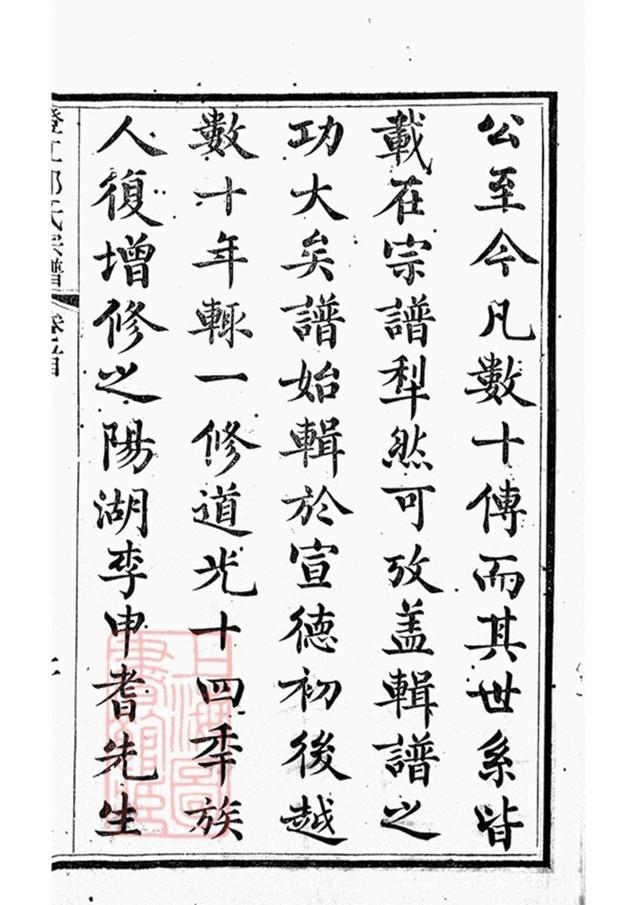 公至今凡數十傳而其世系皆
載在宗譜犁然可攷蓋輯譜之
功大矣譜始輯於宣德初後越
數十年輒一修道光十四秊族
人復增修之陽湖李申耆先生
氏宗譜 卷首
上海圖書館藏